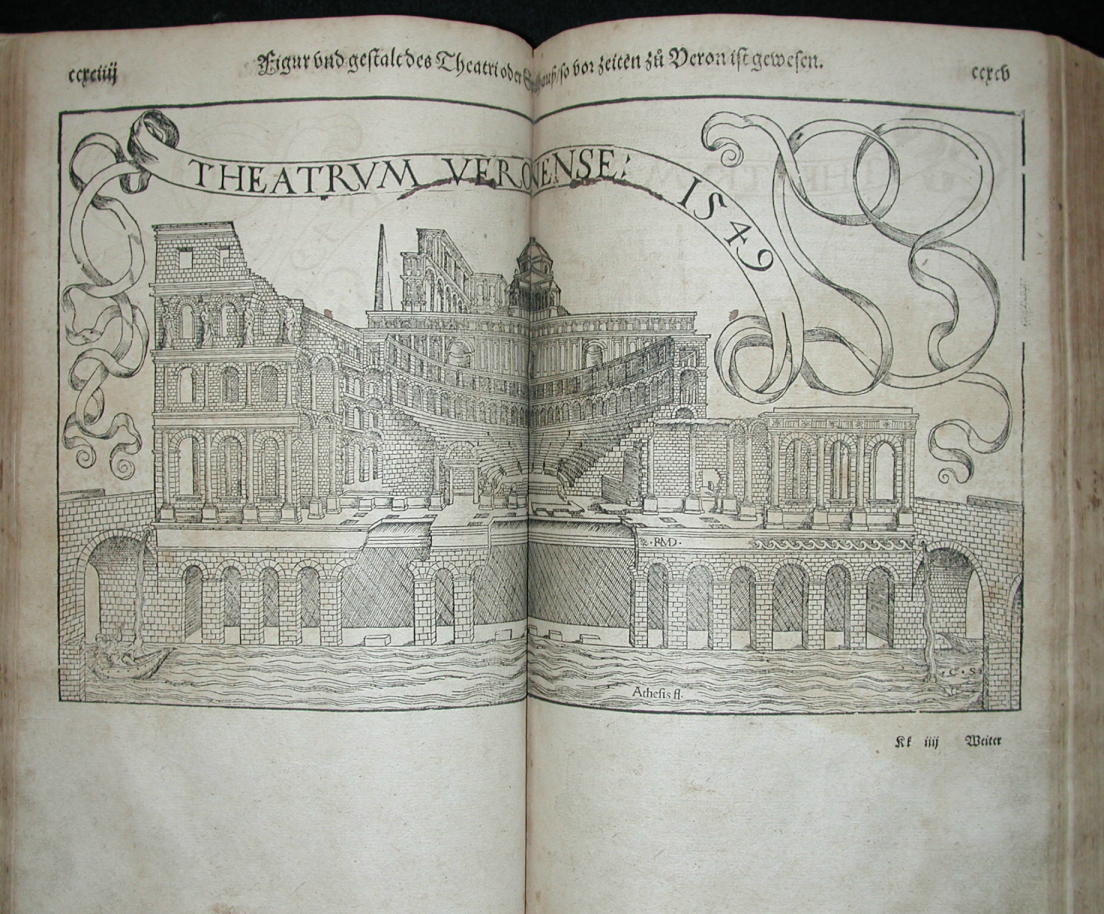 ccxciiij
Figur vnd gestalt des Theatri oder so vor zeiten zů Veron ist gewesen.
ccxcv
THEATRVM VERONENSE: 1549
RMD
Athesis fl.
C S
Kk iiij Weiter